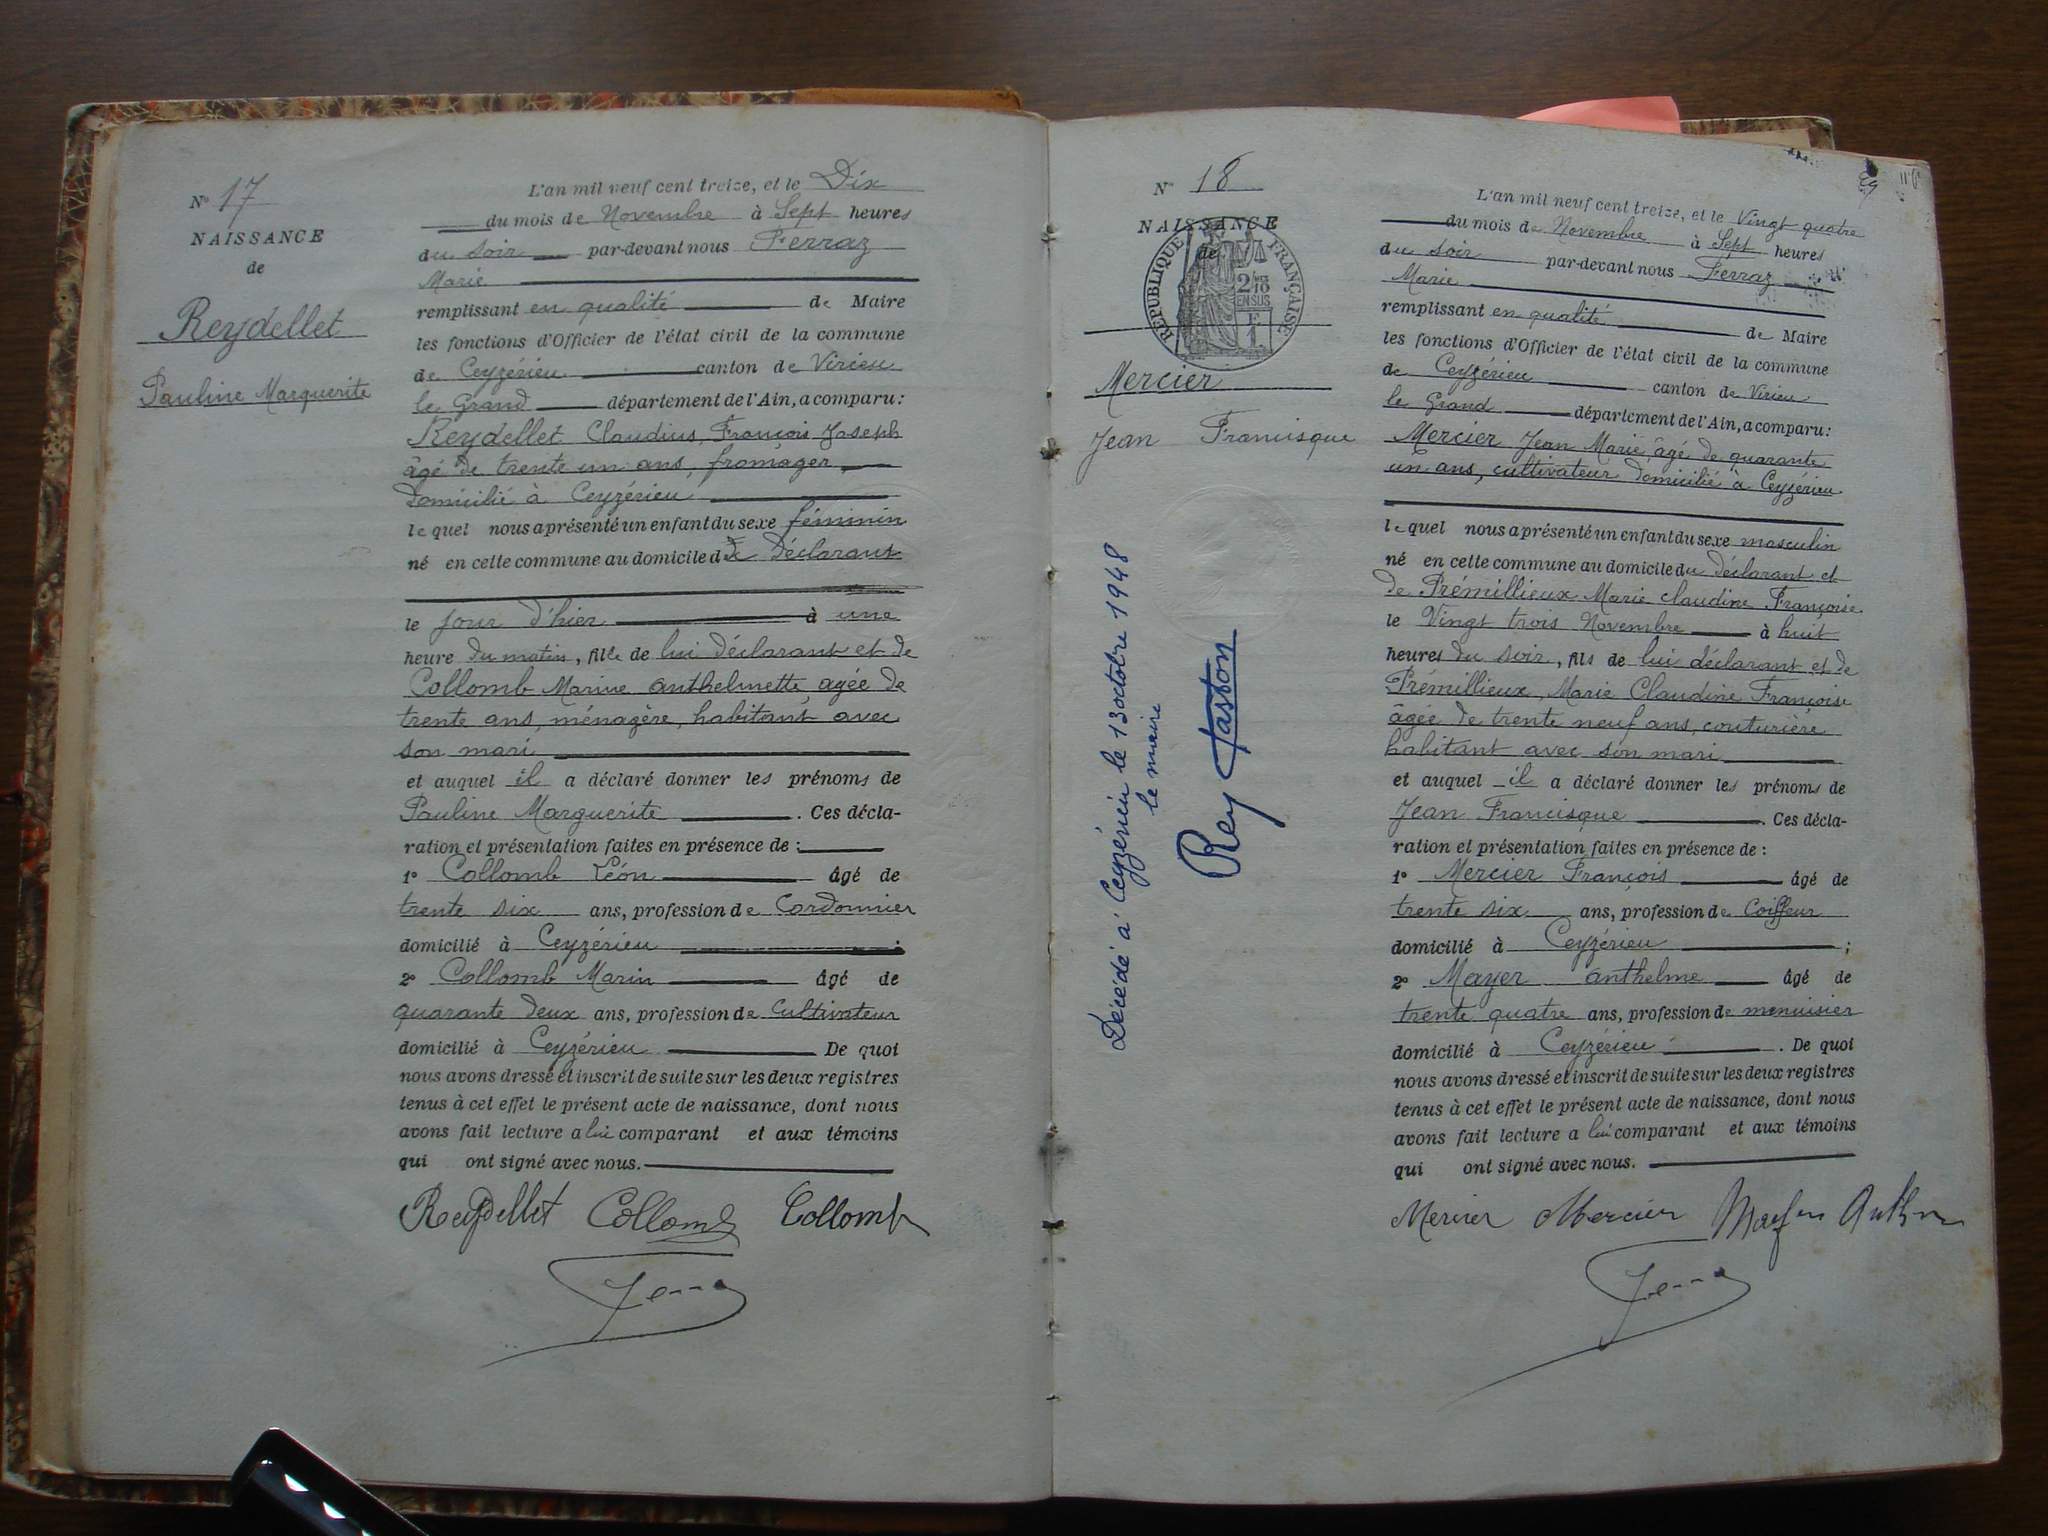 N° 17
NAISSANCE
de
Reydellet
Pauline Marguerite
L'an mil neuf cent treize, et le Dix
du mois de Novembre à Sept heures
du soir par-devant nous Ferraz
Marie
remplissant en qualité de Maire
les fonctions d'Officier de l'état civil de la commune
de Ceyzérieu canton de Virieu
le Grand département de l'Ain, a comparu:
Reydellet Claudius, François Joseph
âgé de trente un ans, fromager
domicilié à Ceyzérieu
le quel nous a présenté un enfant du sexe féminin
né en cette commune au domicile de déclarant
le jour d'hier à une
heure du matin, fille de lui déclarant et de
Collomb Marine Anthelmette, agée de
trente ans, ménagère, habitant avec
son mari
et auquel il a déclaré donner les prénoms de
Pauline Marguerite . Ces décla-
ration et présentation faites en présence de :
1° Collomb Léon âgé de
trente six ans, profession de Cordonnier
domicilié à Ceyzérieu ;
2° Collomb Marin âgé de
quarante deux ans, profession de Cultivateur
domicilié à Ceyzérieu De quoi
nous avons dressé et inscrit de suite sur les deux registres
tenus à cet effet le présent acte de naissance, dont nous
avons fait lecture a lui comparant et aux témoins
qui ont signé avec nous.
Reydellet Collomb Collomb
N° 18
NAISSANCE
de
RÉPUBLIQUE FRANÇAISE
2/10
EN SUS
Mercier
Jean Francisque
Décédé à Ceyzérieu le 13 octobre 1948
le maire
Rey Gaston
L'an mil neuf cent treize, et le Vingt quatre
du mois de Novembre à Sept heures
du soir par-devant nous Ferraz
Marie
remplissant en qualité de Maire
les fonctions d'Officier de l'état civil de la commune
de Ceyzérieu canton de Virieu
le Grand département de l'Ain, a comparu:
Mercier Jean Marie âgé de quarante
un ans, cultivateur domicilié à Ceyzérieu
le quel nous a présenté un enfant du sexe masculin
né en cette commune au domicile du déclarant et
de Prémillieux Marie Claudine Françoise
le Vingt trois Novembre à huit
heures du soir, fils de lui déclarant et de
Prémillieux, Marie Claudine Françoise
âgée de trente neuf ans, couturière
habitant avec son mari
et auquel il a déclaré donner les prénoms de
Jean Francisque . Ces décla-
ration et présentation faites en présence de :
1° Mercier François âgé de
trente six ans, profession de Coiffeur
domicilié à Ceyzérieu ;
2° Mayer Anthelme âgé de
trente quatre ans, profession de menuisier
domicilié à Ceyzérieu . De quoi
nous avons dressé et inscrit de suite sur les deux registres
tenus à cet effet le présent acte de naissance, dont nous
avons fait lecture a lui comparant et aux témoins
qui ont signé avec nous.
Mercier Mercier